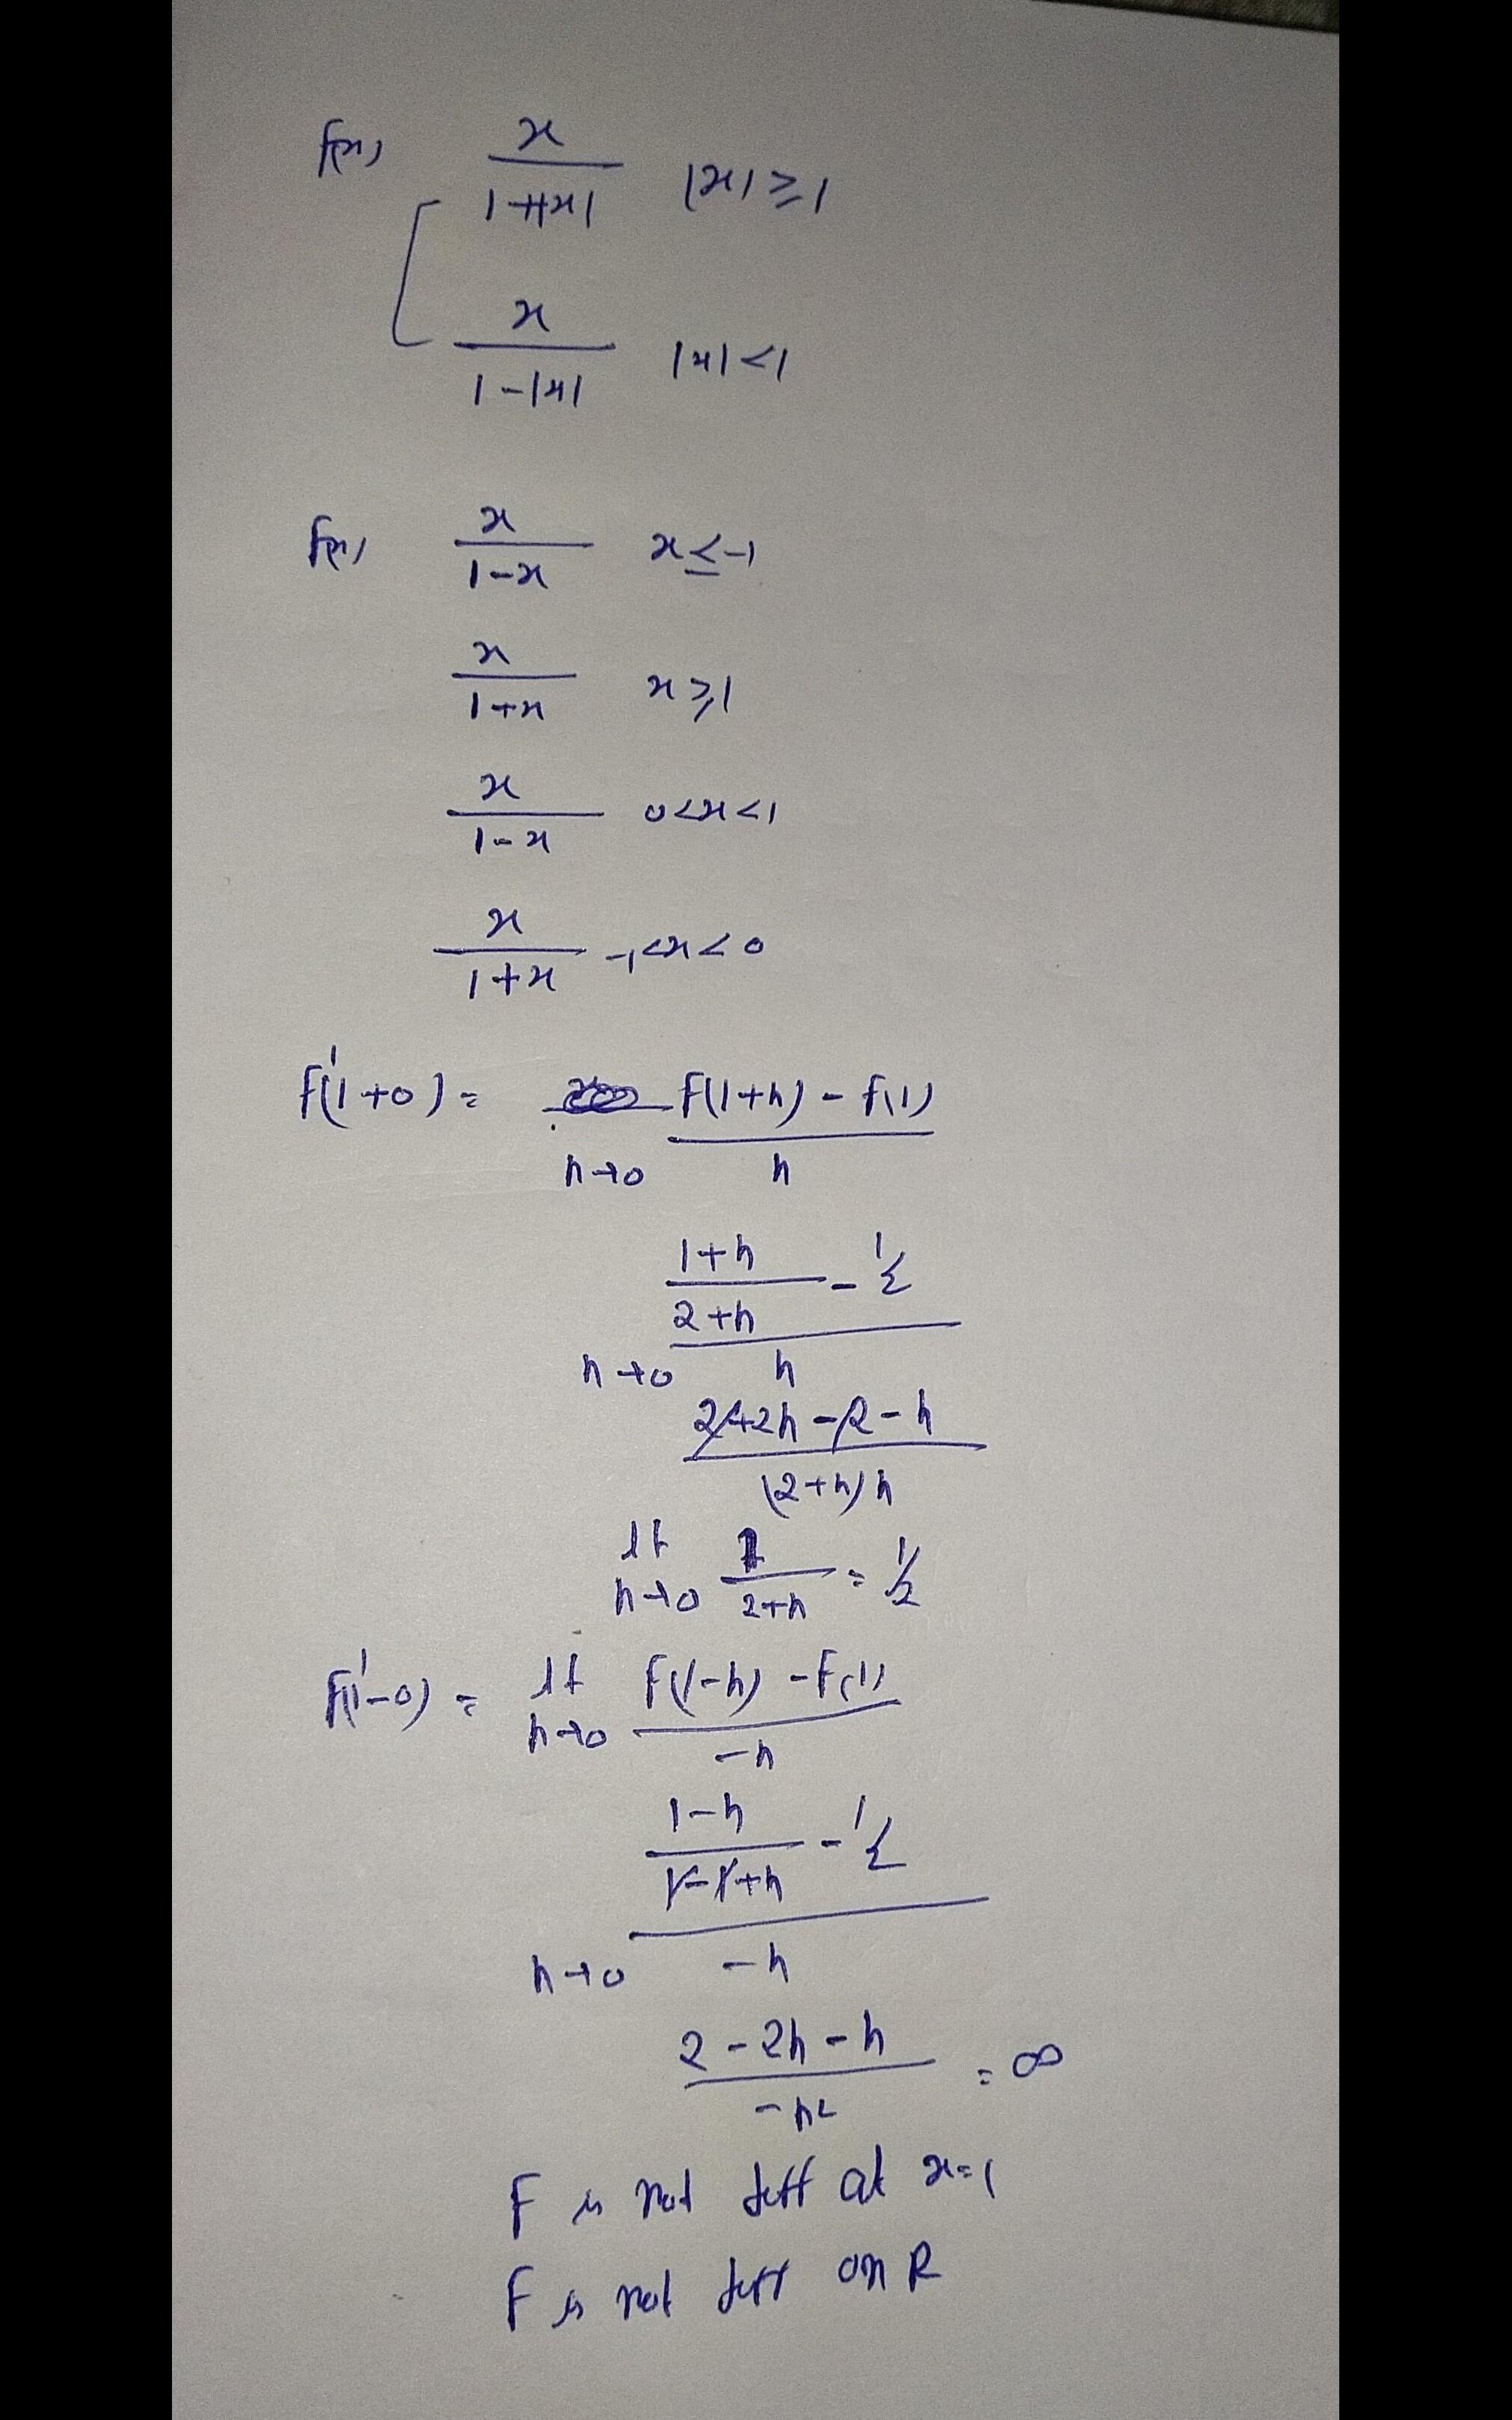 f(x) x/(1+|x|) |x| ≥ 1
x/(1-|x|) |x| < 1
f(x) x/(1-x) x ≤ -1
x/(1+x) x ≥ 1
x/(1-x) 0<x<1
x/(1+x) -1<x<0
f'(1+0) = h→0 (f(1+h) - f(1))/h
h→0 ((1+h)/(2+h) - 1/2)/h
(2+2h-2-h)/((2+h)h)
lt h→0 1/(2+h) = 1/2
f'(1-0) = lt h→0 (f(1-h) - f(1))/-h
h→0 ((1-h)/(1-1+h) - 1/2)/-h
(2-2h-h)/-h² = ∞
F is not diff at x=1
F is not diff on R